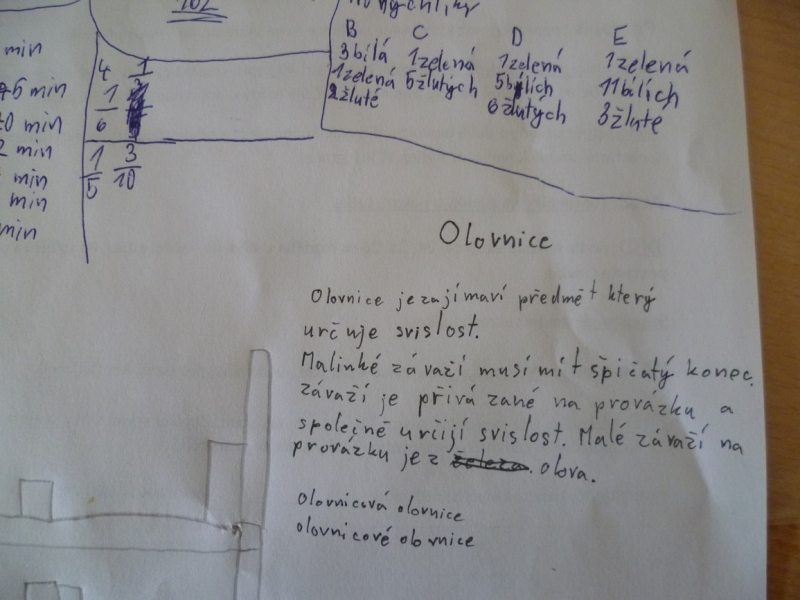 102
min
min
0 min
2 min
min
min
min
4 1
1
6
1 3
5 10
B C D E
3 bílá 1 zelená 1 zelená 1 zelená
1 zelená 5 žlutých 5 bílich 11 bílich
2 žluté 6 žlutých 3 žluté
Olovnice
Olovnice je zajímaví předmět který
určuje svislost.
Malinké závaží musí mít špičatý konec.
závaží je přivázané na provázku a
společně určijí svislost. Malé závaží na
provázku je z olova.
Olovnicová olovnice
olovnicové olovnice